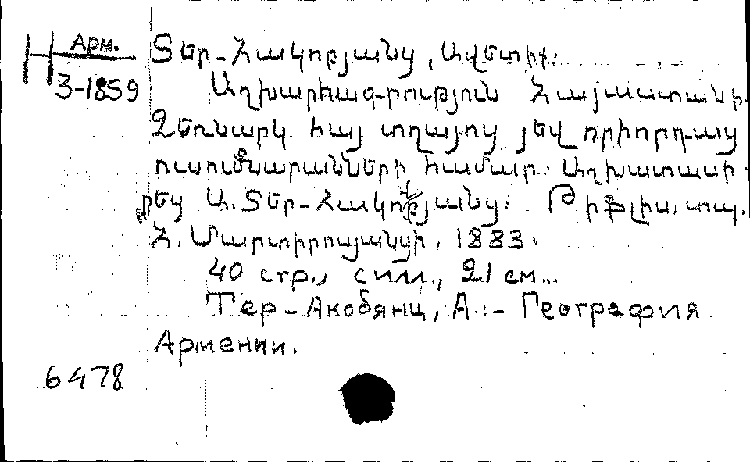 Арм.
3-1859
Տեր-Հակոբյանց, Ավետիք.
Աղխարհագրություն Հայաստանի.
Ձեռնարկ հայ տղայոց յեվ որիորդաց
ուսումնարանների համար. Աղխատասի-
րեց Ա. Տեր-Հակոբյանց. Թիֆլիս, տպ.
Հ. Մարտիրոսյանցի, 1883.
40 стр., см., 21 см.
Тер-Акобянц, А. - География
Армении.
6478